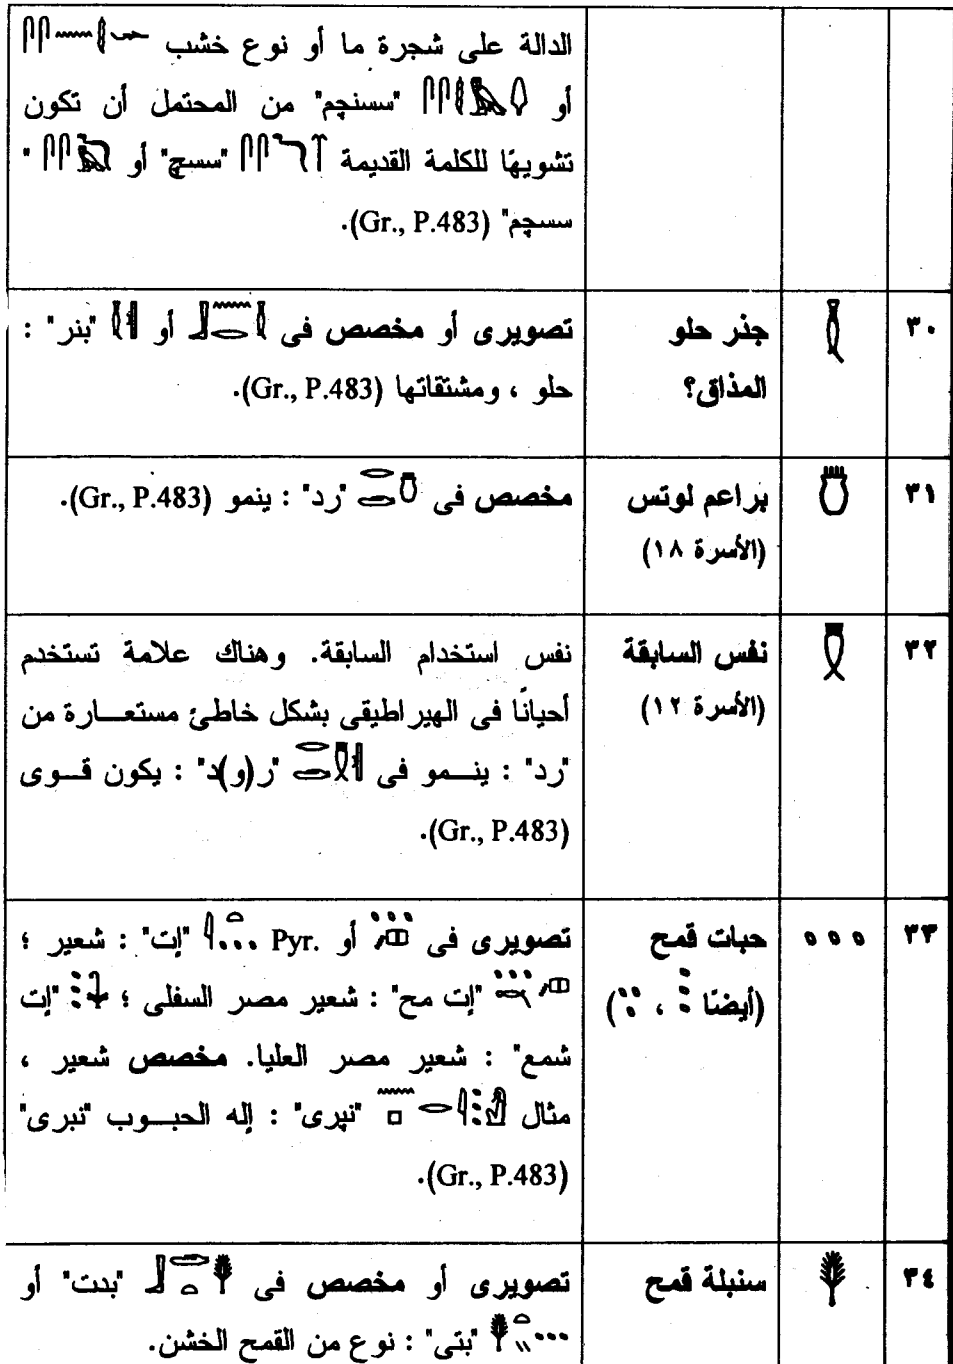 الدالة على شجرة ما أو نوع خشب
أو "سسنچم" من المحتمل أن تكون
تشويهًا للكلمة القديمة "سسچ" أو "
سسچم" (Gr., P.483).
٣٠
جذر حلو
المذاق؟
تصويرى أو مخصص فى أو "بنر" :
حلو ، ومشتقاتها (Gr., P.483).
٣١
براعم لوتس
(الأسرة ١٨)
مخصص فى "رد" : ينمو (Gr., P.483).
٣٢
نفس السابقة
(الأسرة ١٢)
نفس استخدام السابقة. وهناك علامة تستخدم
أحيانًا فى الهيراطيقى بشكل خاطئ مستعـــارة من
"رد" : ينـــمو فى "ر(و)د" : يكون قـــوى
(Gr., P.483).
٣٣
حبات قمح
(أيضًا ، )
تصويرى فى أو Pyr. "إت" : شعير ؛
"إت مح" : شعير مصر السفلى ؛ "إت
شمع" : شعير مصر العليا. مخصص شعير ،
مثال "نپرى" : إله الحبـــوب "نبرى"
(Gr., P.483).
٣٤
سنبلة قمح
تصويرى أو مخصص فى "بدت" أو
"بتى" : نوع من القمح الخشن.